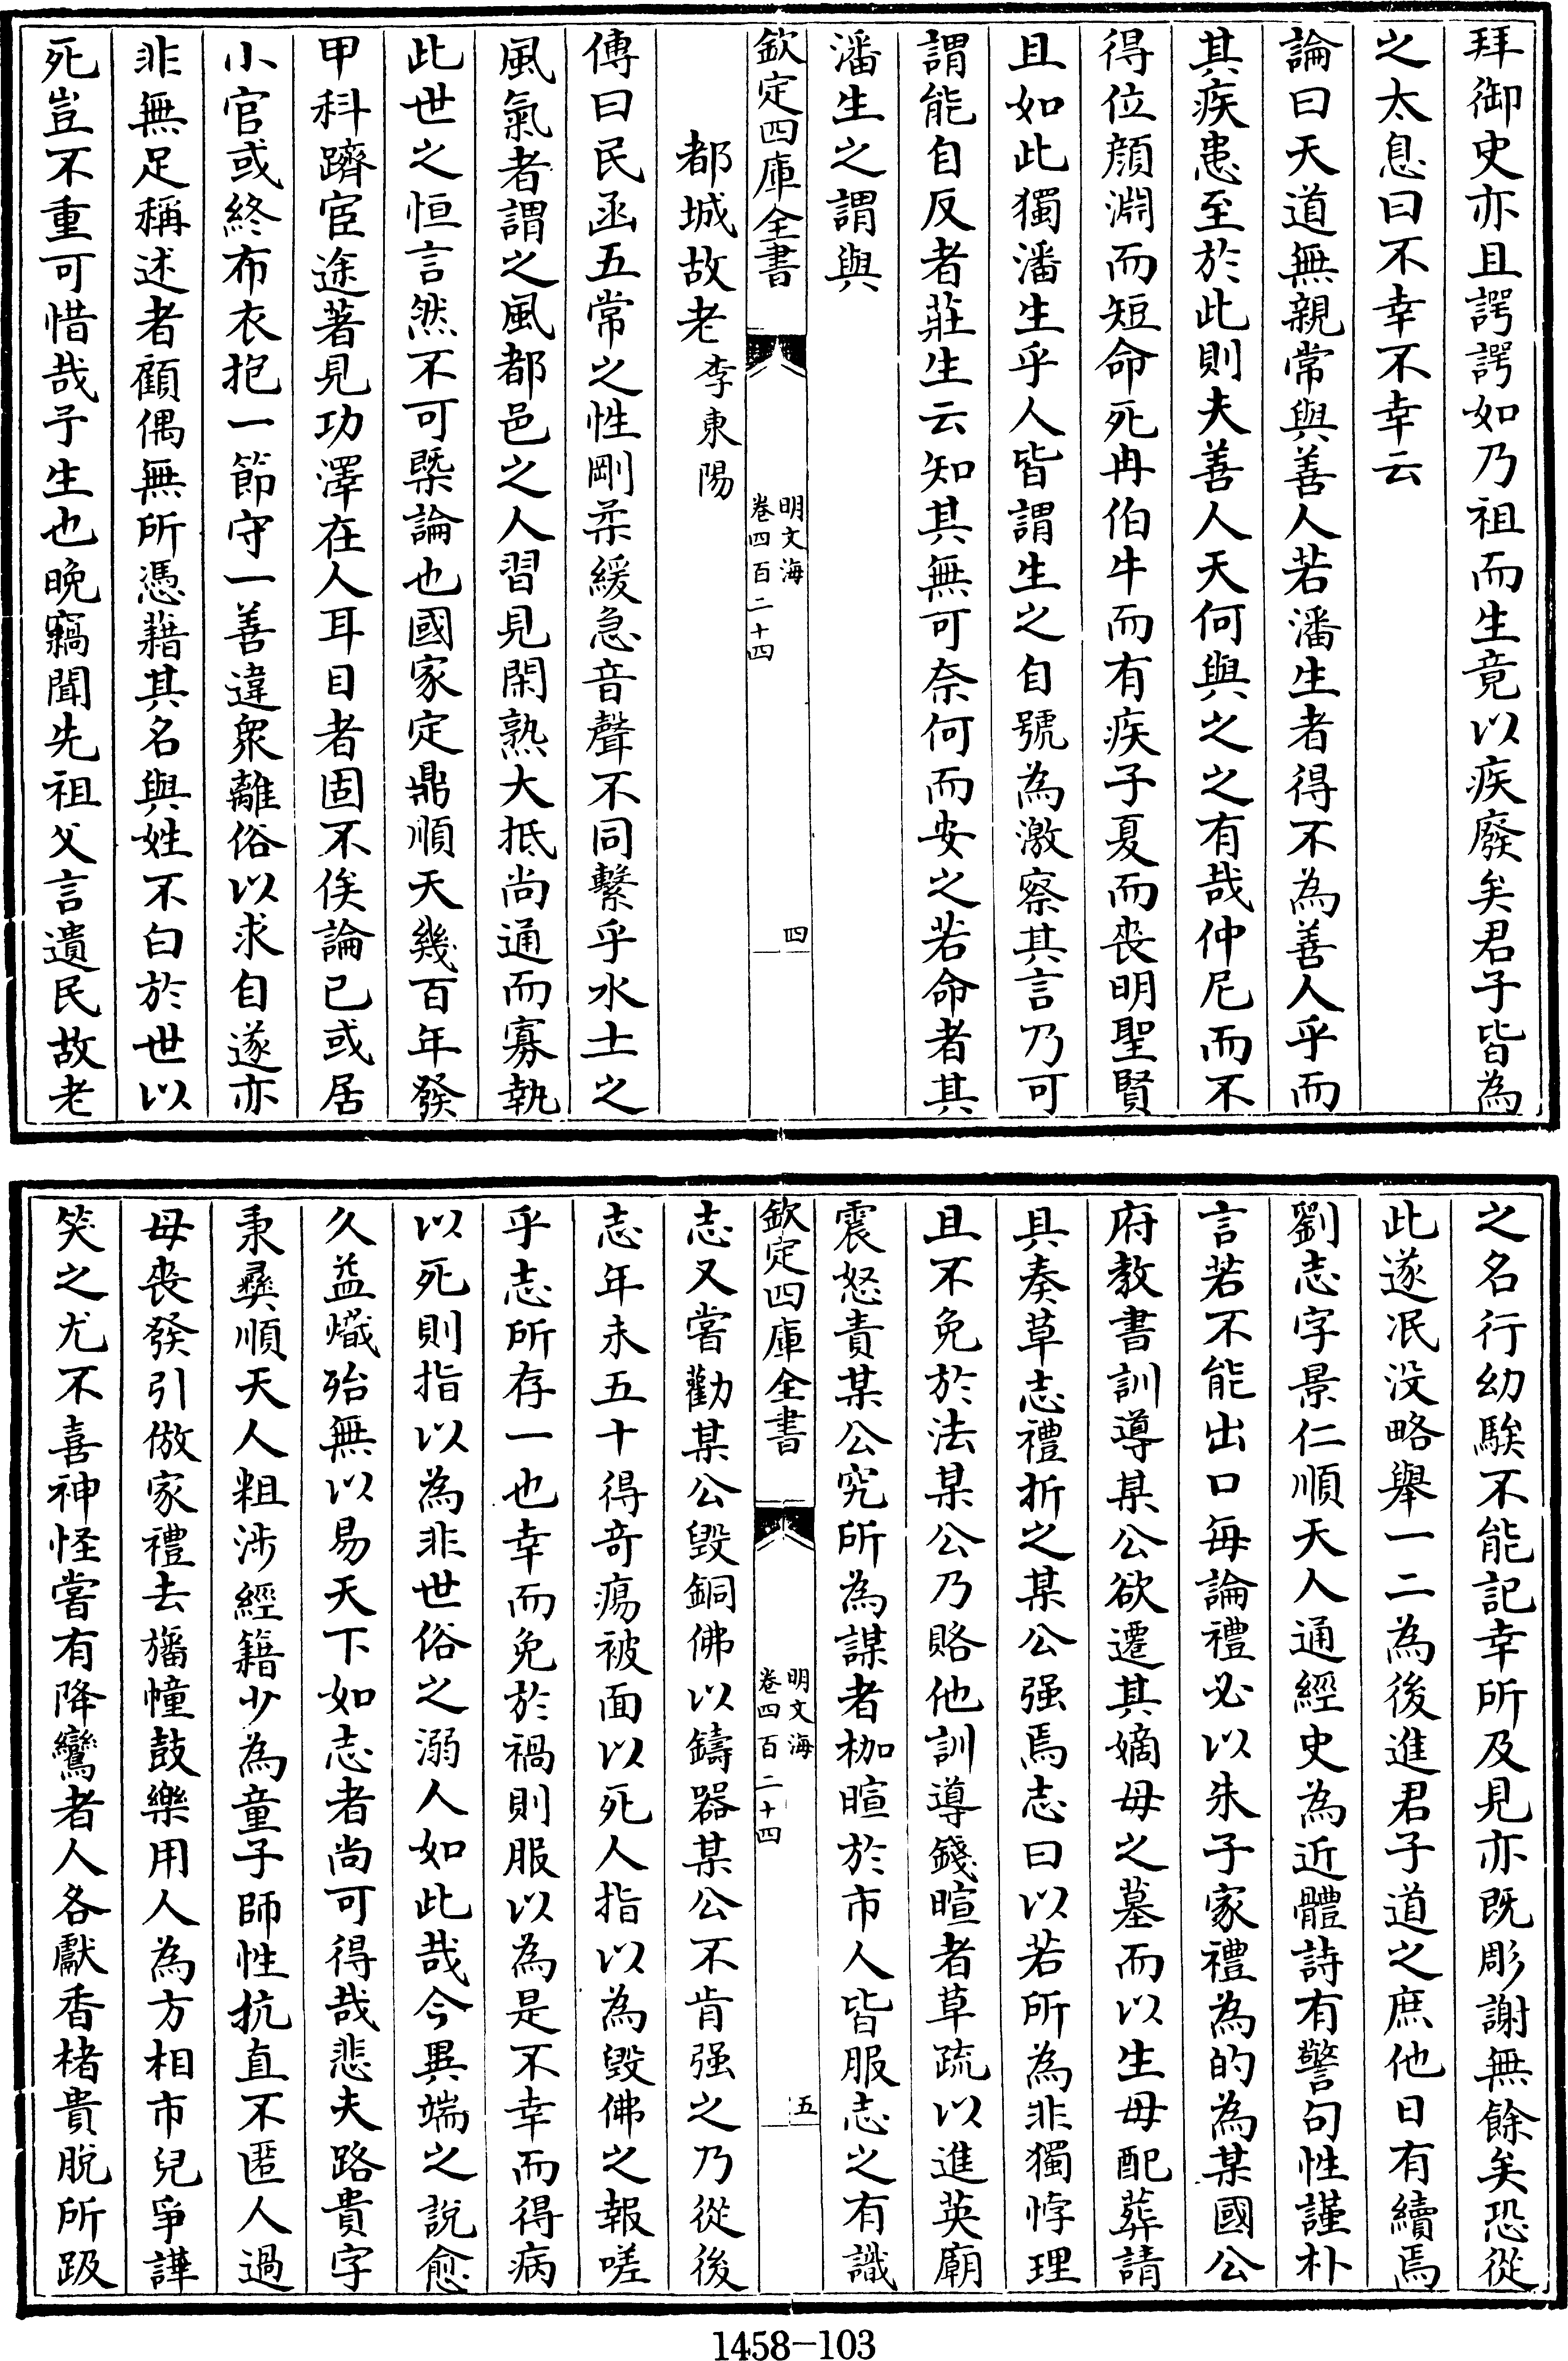 拜御史亦且諤諤如乃祖而生竟以疾廢矣君子皆為
之太息曰不幸不幸云
論曰天道無親常與善人若潘生者得不為善人乎而
其疾患至於此則夫善人天何與之之有哉仲尼而不
得位顔淵而短命死冉伯牛而有疾子夏而喪明聖賢
且如此獨潘生乎人皆謂生之自號為激察其言乃可
謂能自反者莊生云知其無可奈何而安之若命者其
潘生之謂與
欽定四庫全書
明文海
卷四百二十四
四
都城故老李東陽
傳曰民函五常之性剛柔緩急音聲不同繫乎水土之
風氣者謂之風都邑之人習見閑熟大抵尚通而寡執
此世之恒言然不可槩論也國家定鼎順天幾百年發
甲科躋宦途著見功澤在人耳目者固不俟論已或居
小官或終布衣抱一節守一善違衆離俗以求自遂亦
非無足稱述者顧偶無所憑藉其名與姓不白於世以
死豈不重可惜哉予生也晚竊聞先祖父言遺民故老
之名行幼騃不能記幸所及見亦既彫謝無餘矣恐從
此遂冺没略舉一二為後進君子道之庶他日有續焉
劉志字景仁順天人通經史為近體詩有警句性謹朴
言若不能出口每論禮必以朱子家禮為的為某國公
府教書訓導某公欲遷其嫡母之墓而以生母配葬請
具奏草志禮折之某公强焉志曰以若所為非獨悖理
且不免於法某公乃賂他訓導錢暄者草疏以進英廟
震怒責某公究所為謀者枷暄於市人皆服志之有識
欽定四庫全書
明文海
卷四百二十四
五
志又嘗勸某公毁銅佛以鑄器某公不肯强之乃從後
志年未五十得奇瘍被面以死人指以為毁佛之報嗟
乎志所存一也幸而免於禍則服以為是不幸而得病
以死則指以為非世俗之溺人如此哉今異端之說愈
久益熾殆無以易天下如志者尚可得哉悲夫路貴字
秉彞順天人粗涉經籍少為童子師性抗直不匿人過
母喪發引倣家禮去旛幢鼓樂用人為方相市兒爭譁
笑之尤不喜神怪嘗有降鸞者人各獻香楮貴脫所趿
1458-103